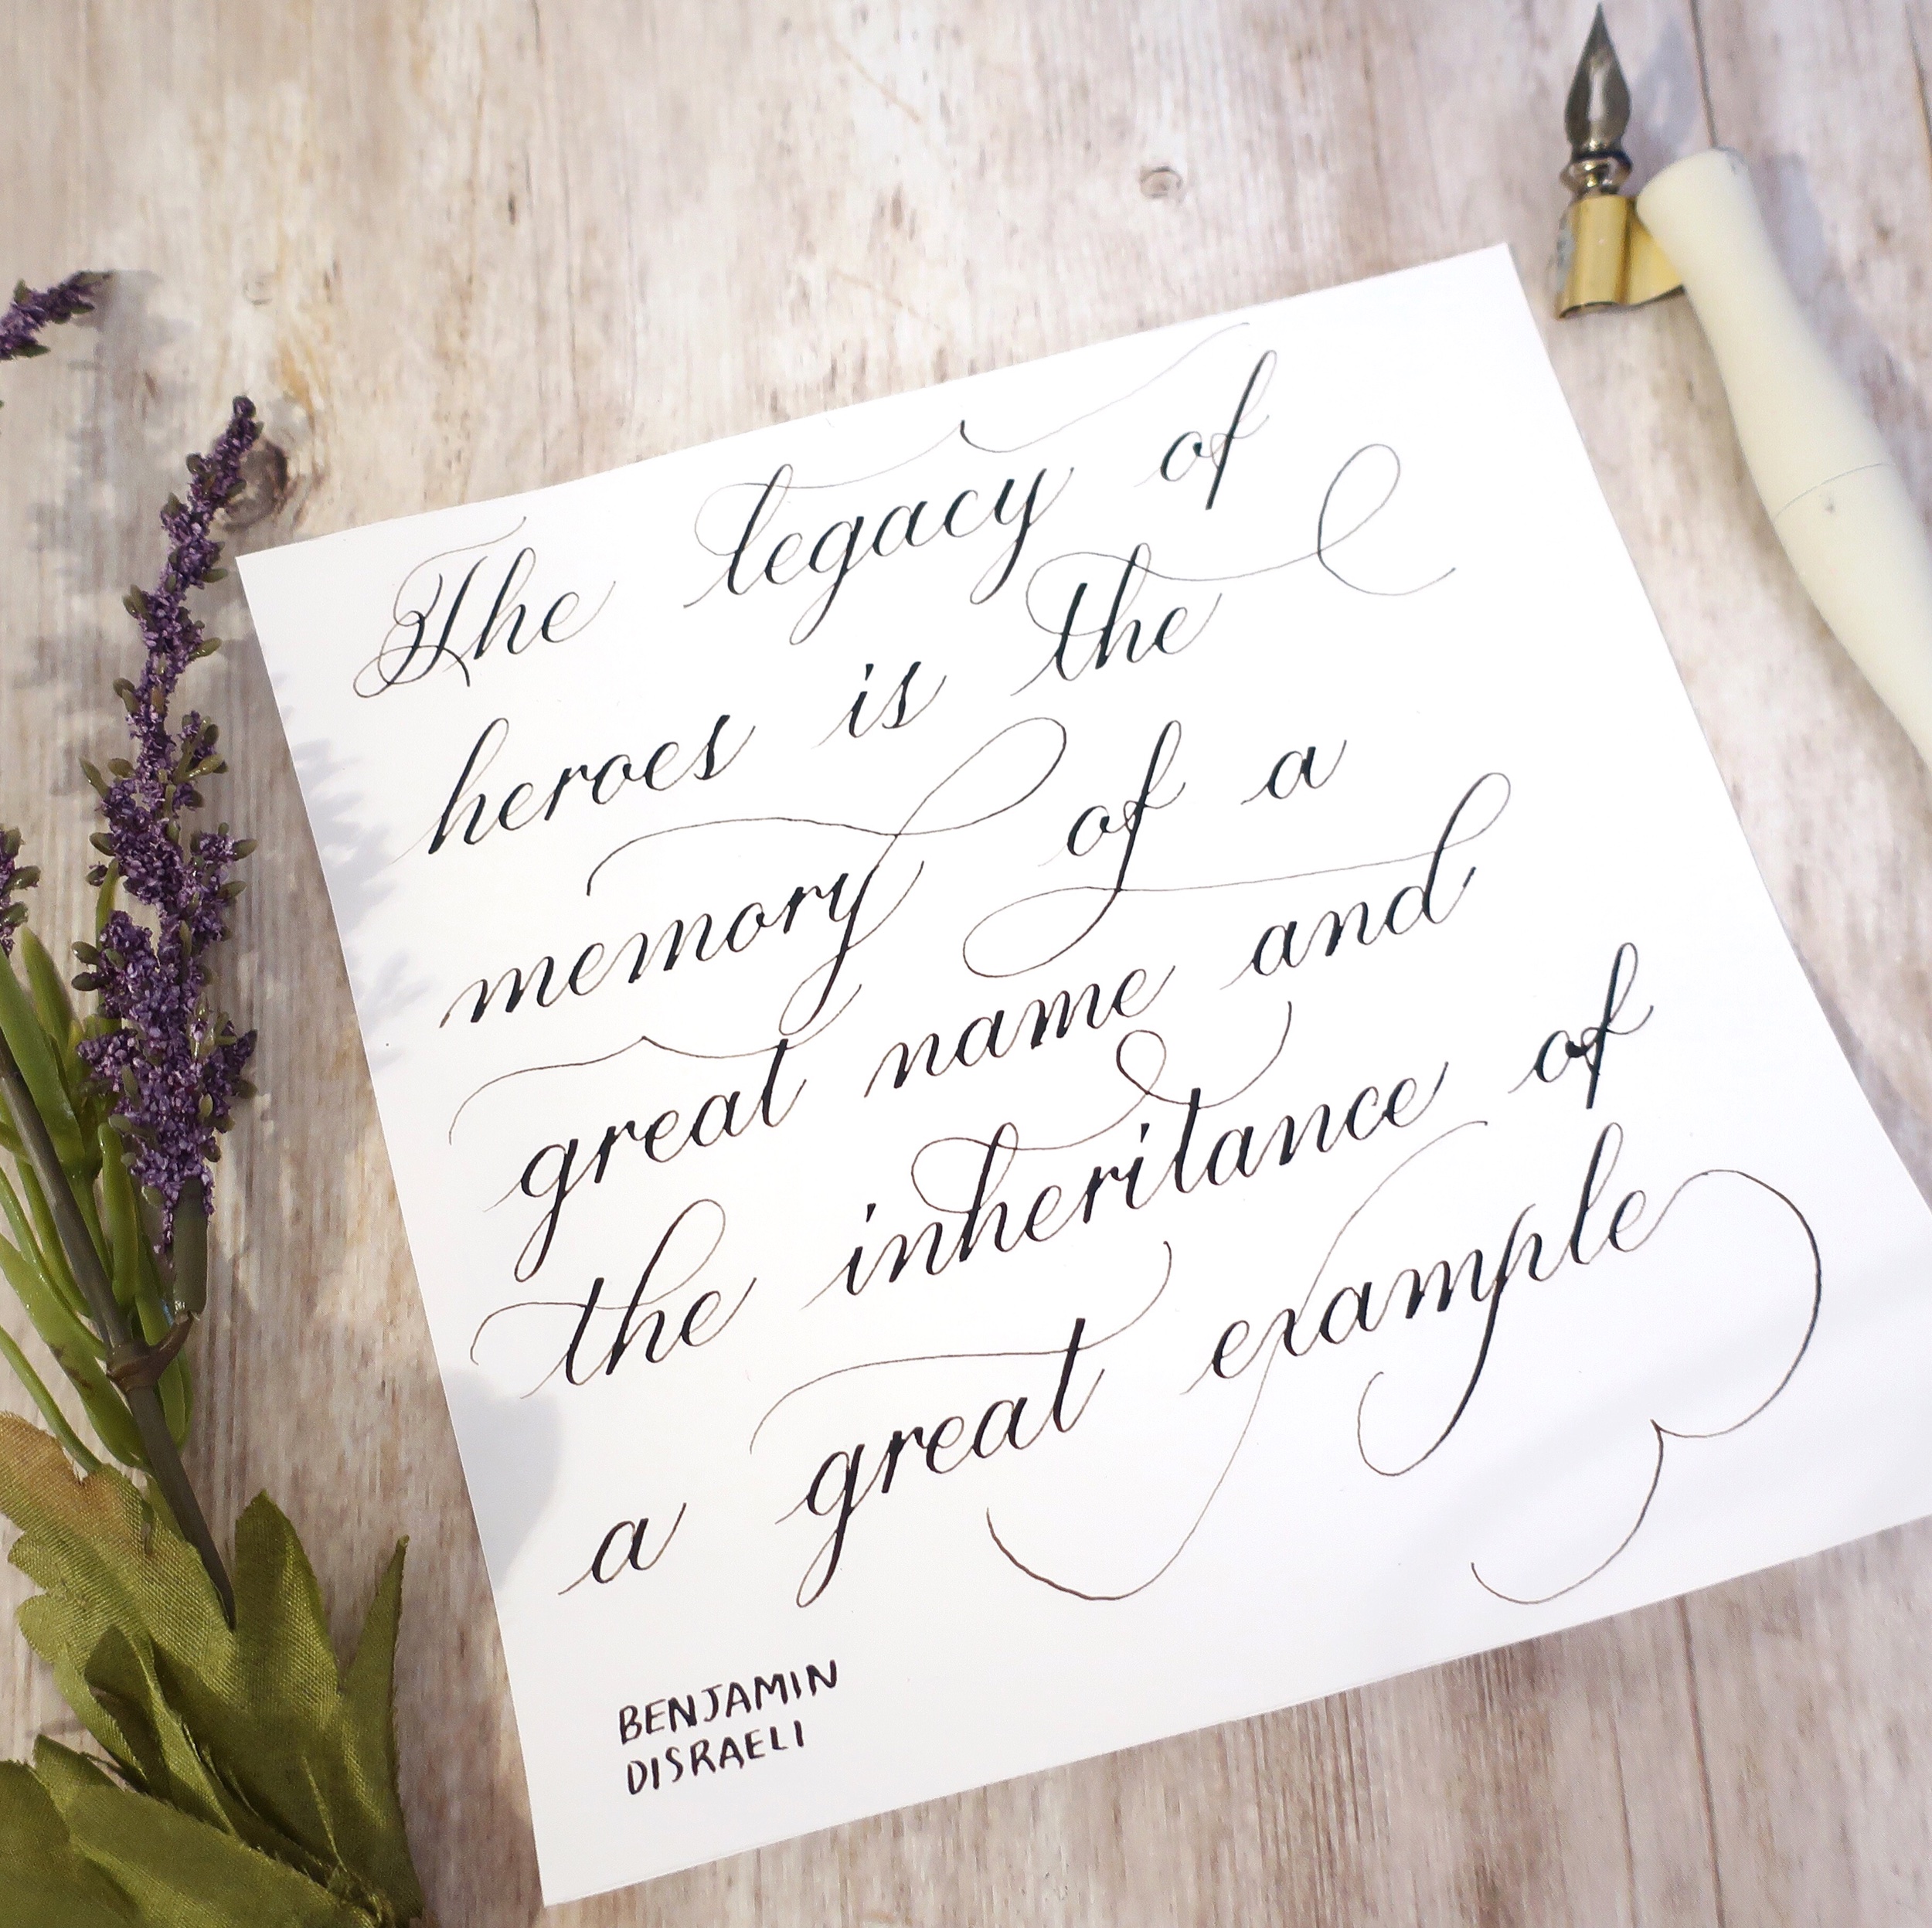 The legacy of
heroes is the
memory of a
great name and
the inheritance of
a great example
BENJAMIN
DISRAELI